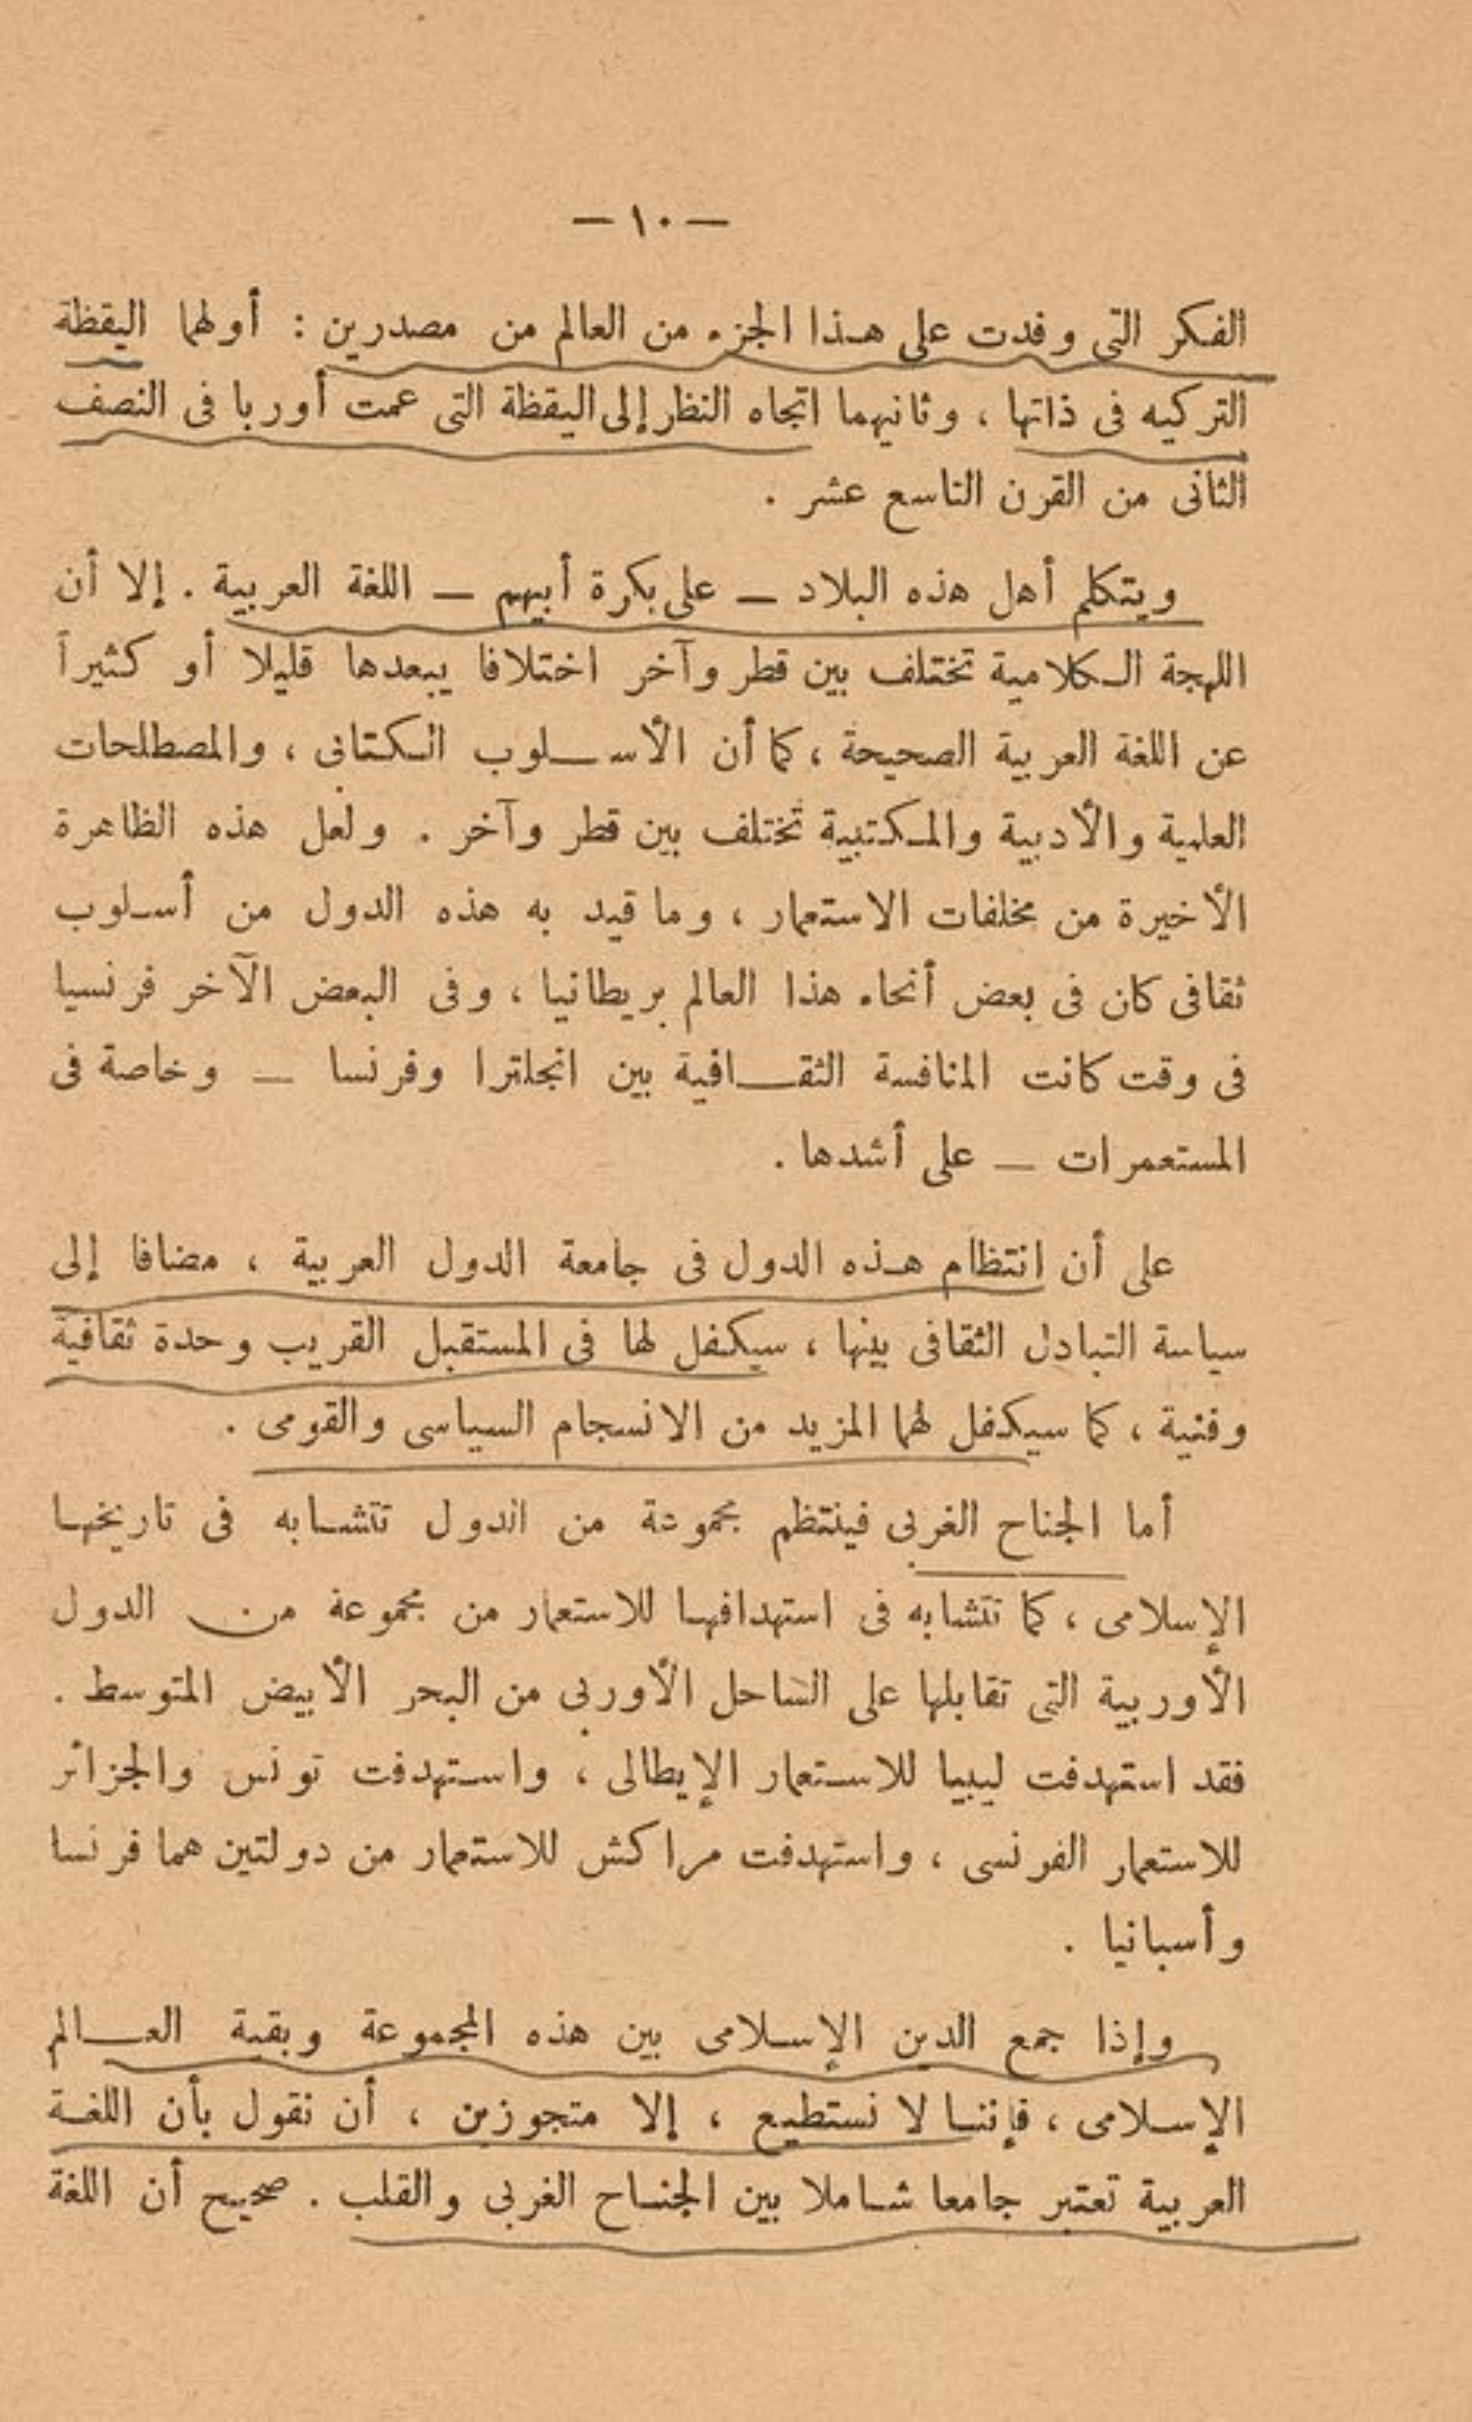 — ١٠ —
الفكر التى وفدت على هذا الجزء من العالم من مصدرين : أولهما اليقظة
التركيه فى ذاتها ، وثانيهما اتجاه النظر إلى اليقظة التى عمت أوربا فى النصف
الثانى من القرن التاسع عشر .
ويتكلم أهل هذه البلاد — على بكرة أبيهم — اللغة العربية . إلا أن
اللهجة الكلامية تختلف بين قطر وآخر اختلافا يبعدها قليلا أو كثيراً
عن اللغة العربية الصحيحة ، كما أن الأسلوب الكتابى ، والمصطلحات
العلمية والأدبية والمكتبية تختلف بين قطر وآخر . ولعل هذه الظاهرة
الأخيرة من مخلفات الاستعمار ، وما قيد به هذه الدول من أسلوب
ثقافى كان فى بعض أنحاء هذا العالم بريطانيا ، وفى البعض الآخر فرنسيا
فى وقت كانت المنافسة الثقافية بين انجلترا وفرنسا — وخاصة فى
المستعمرات — على أشدها .
على أن انتظام هذه الدول فى جامعة الدول العربية ، مضافا إلى
سياسة التبادل الثقافى بينها ، سيكفل لها فى المستقبل القريب وحدة ثقافية
وفنية ، كما سيكفل لها المزيد من الانسجام السياسى والقومى .
أما الجناح الغربى فينتظم مجموعة من الدول تتشابه فى تاريخها
الإسلامى ، كما تتشابه فى استهدافها للاستعمار من مجموعة من الدول
الأوربية التى تقابلها على الساحل الأوربى من البحر الأبيض المتوسط .
فقد استهدفت ليبيا للاستعمار الإيطالى ، واستهدفت تونس والجزائر
للاستعمار الفرنسى ، واستهدفت مراكش للاستعمار من دولتين هما فرنسا
وأسبانيا .
وإذا جمع الدين الإسلامى بين هذه المجموعة وبقية العالم
الإسلامى ، فإننا لا نستطيع ، إلا متجوزين ، أن نقول بأن اللغة
العربية تعتبر جامعا شاملا بين الجناح الغربى والقلب . صحيح أن اللغة